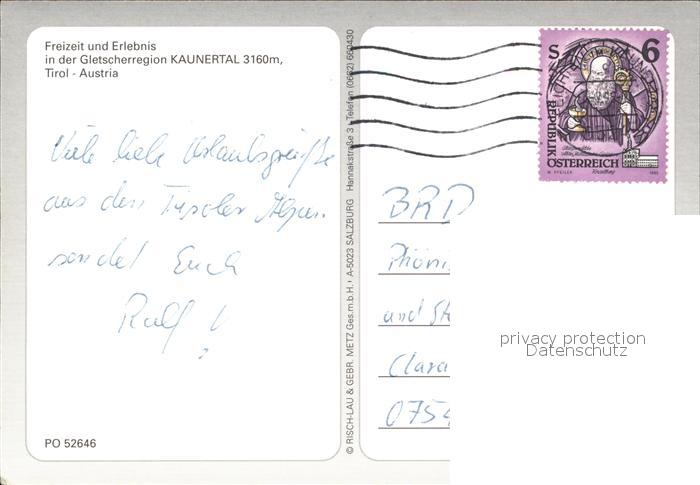 Freizeit und Erlebnis
in der Gletscherregion KAUNERTAL 3160m,
Tirol - Austria
Viele liebe Urlaubsgrüße
aus den Tiroler Alpen
sendet Euch
Ralf !
PO 52646
© RISCH-LAU & GEBR. METZ Ges.m.b.H., A-5023 SALZBURG Hannakstraße 3 · Telefon (0662) 660430
S 6
REPUBLIK
ÖSTERREICH
BRD
Phöni
und St
Clara
0754
privacy protection
Datenschutz